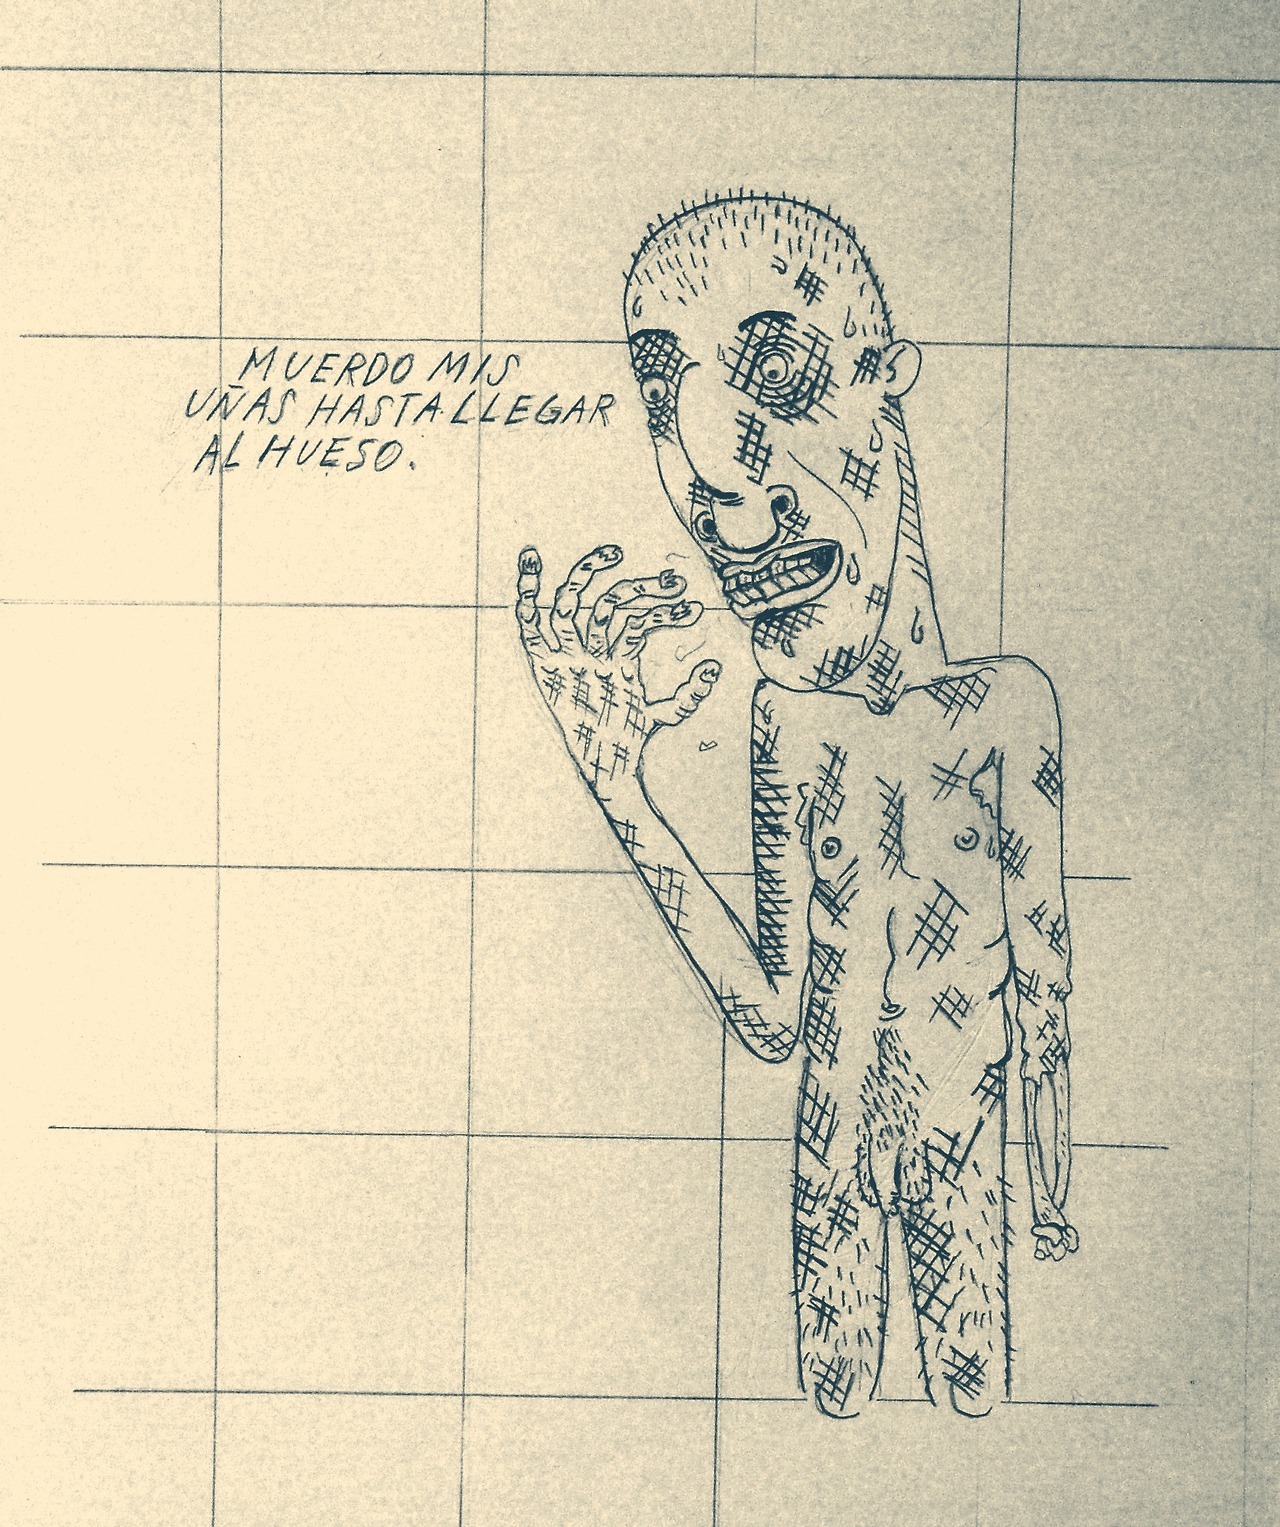 MUERDO MIS
UÑAS HASTA LLEGAR
AL HUESO.